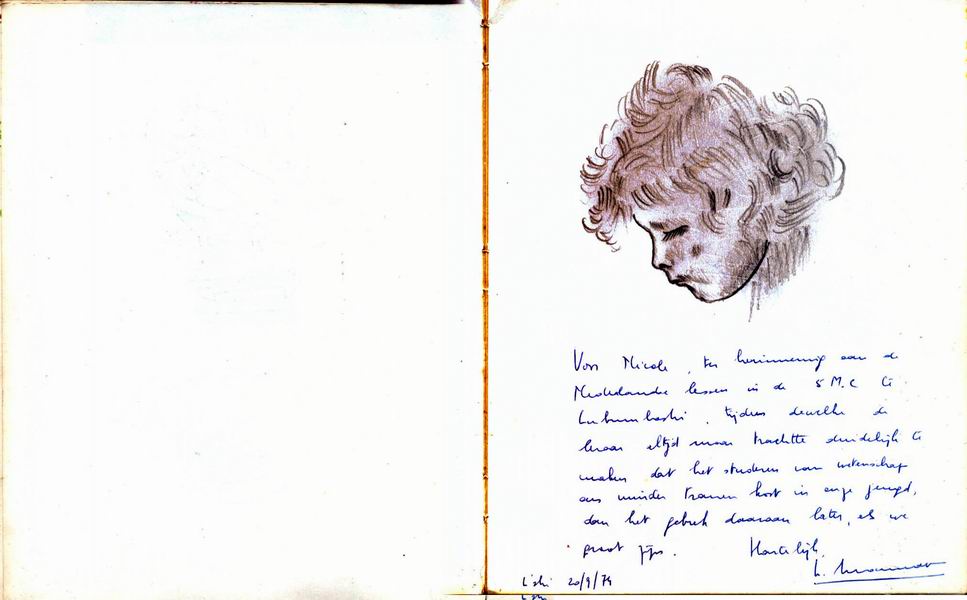 Voor Nicole, ter herinnering aan de
Nederlandse lessen in de 5 M.C te
Lubumbashi, tijdens dewelke de
leraar altijd maar trachtte duidelijk te
maken dat het studeren van wetenschap
ons minder tranen kost in onze jeugd,
dan het gebrek daaraan later, als we
groot zijn.
Hartelijk,
L'shi 20/9/79